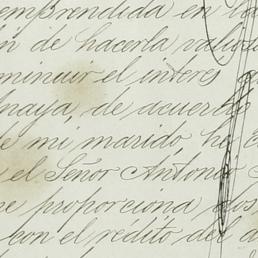 emprendida en la
de hacerla valios
minuir el interes
maya, de acuerdo
de mi marido, he
el Señor Antonio
proporciona dos
con el rédito del